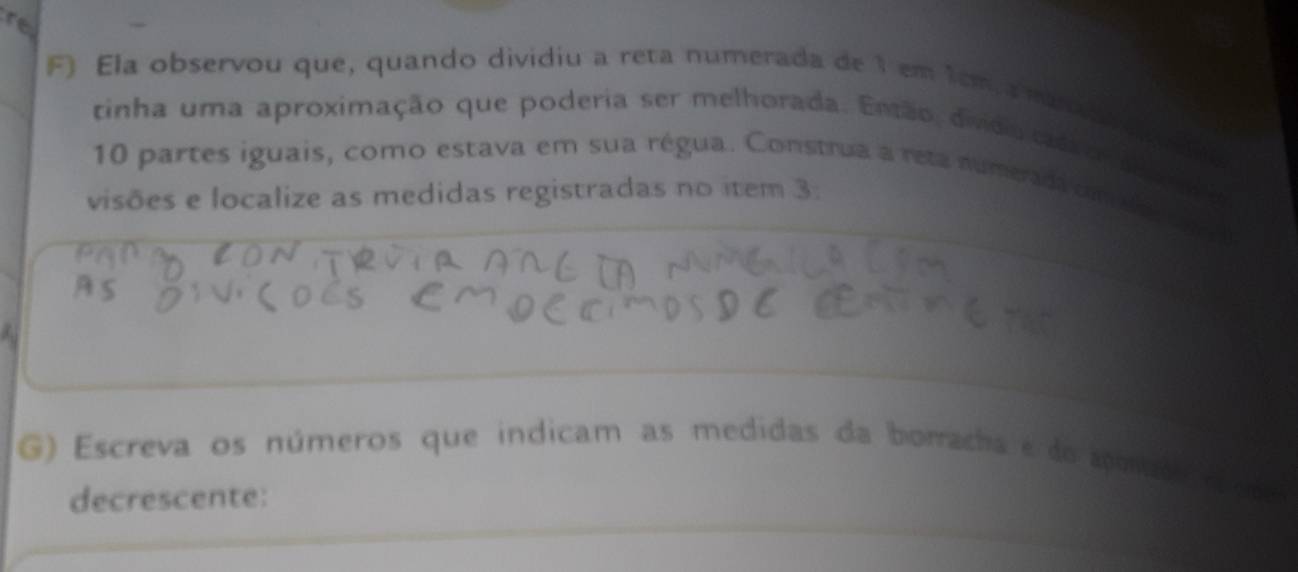 F) Ela observou que, quando dividiu a reta numerada de 1 em 1cm, a
tinha uma aproximação que poderia ser melhorada. Então, dividiu cada
10 partes iguais, como estava em sua régua. Construa a reta numerada com
visões e localize as medidas registradas no item 3:
CON TRUIR A RETA NUMERICA COM
AS DIVIÇOES EM DECIMOS DE
G) Escreva os números que indicam as medidas da borracha e do apontador
decrescente: